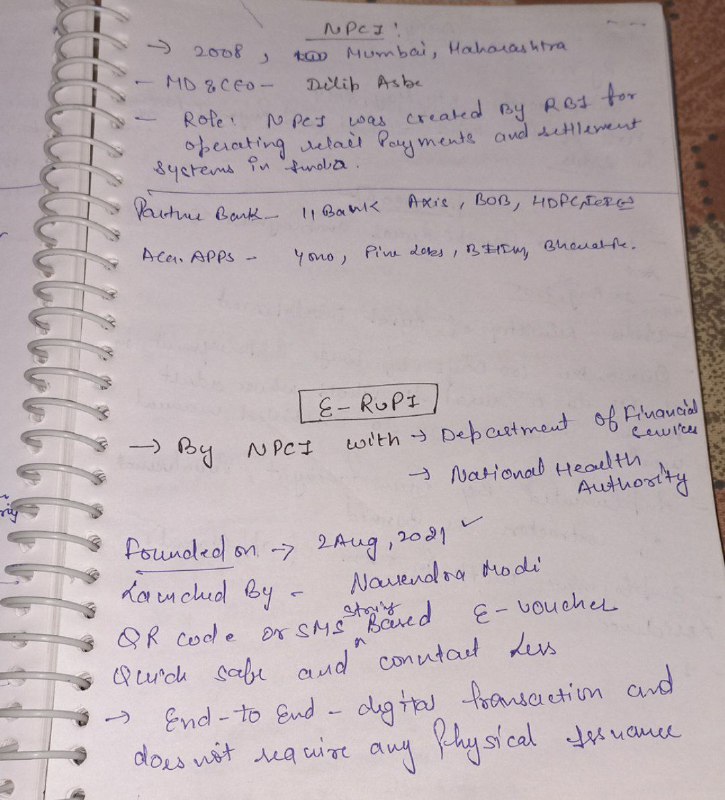 NPCI:
→ 2008, Mumbai, Maharashtra
- MD & CEO - Dilip Asbe
- Role: NPCI was created By RBI for
operating retail Payments and settlement
systems in India.
Partner Bank - 11 Bank Axis, BOB, HDFC, ICICI
Acq. APPS - Yono, Pine Labs, BHIM, BharatPe.
E-RUPI
→ By NPCI with → Department of Financial
Services
→ National Health
Authority
founded on → 2 Aug, 2021 ✓
Launched By - Narendra Modi
QR code or SMS string Based E-voucher
Quick safe and contact less
→ End-to End - digital transaction and
does not require any Physical Issuance